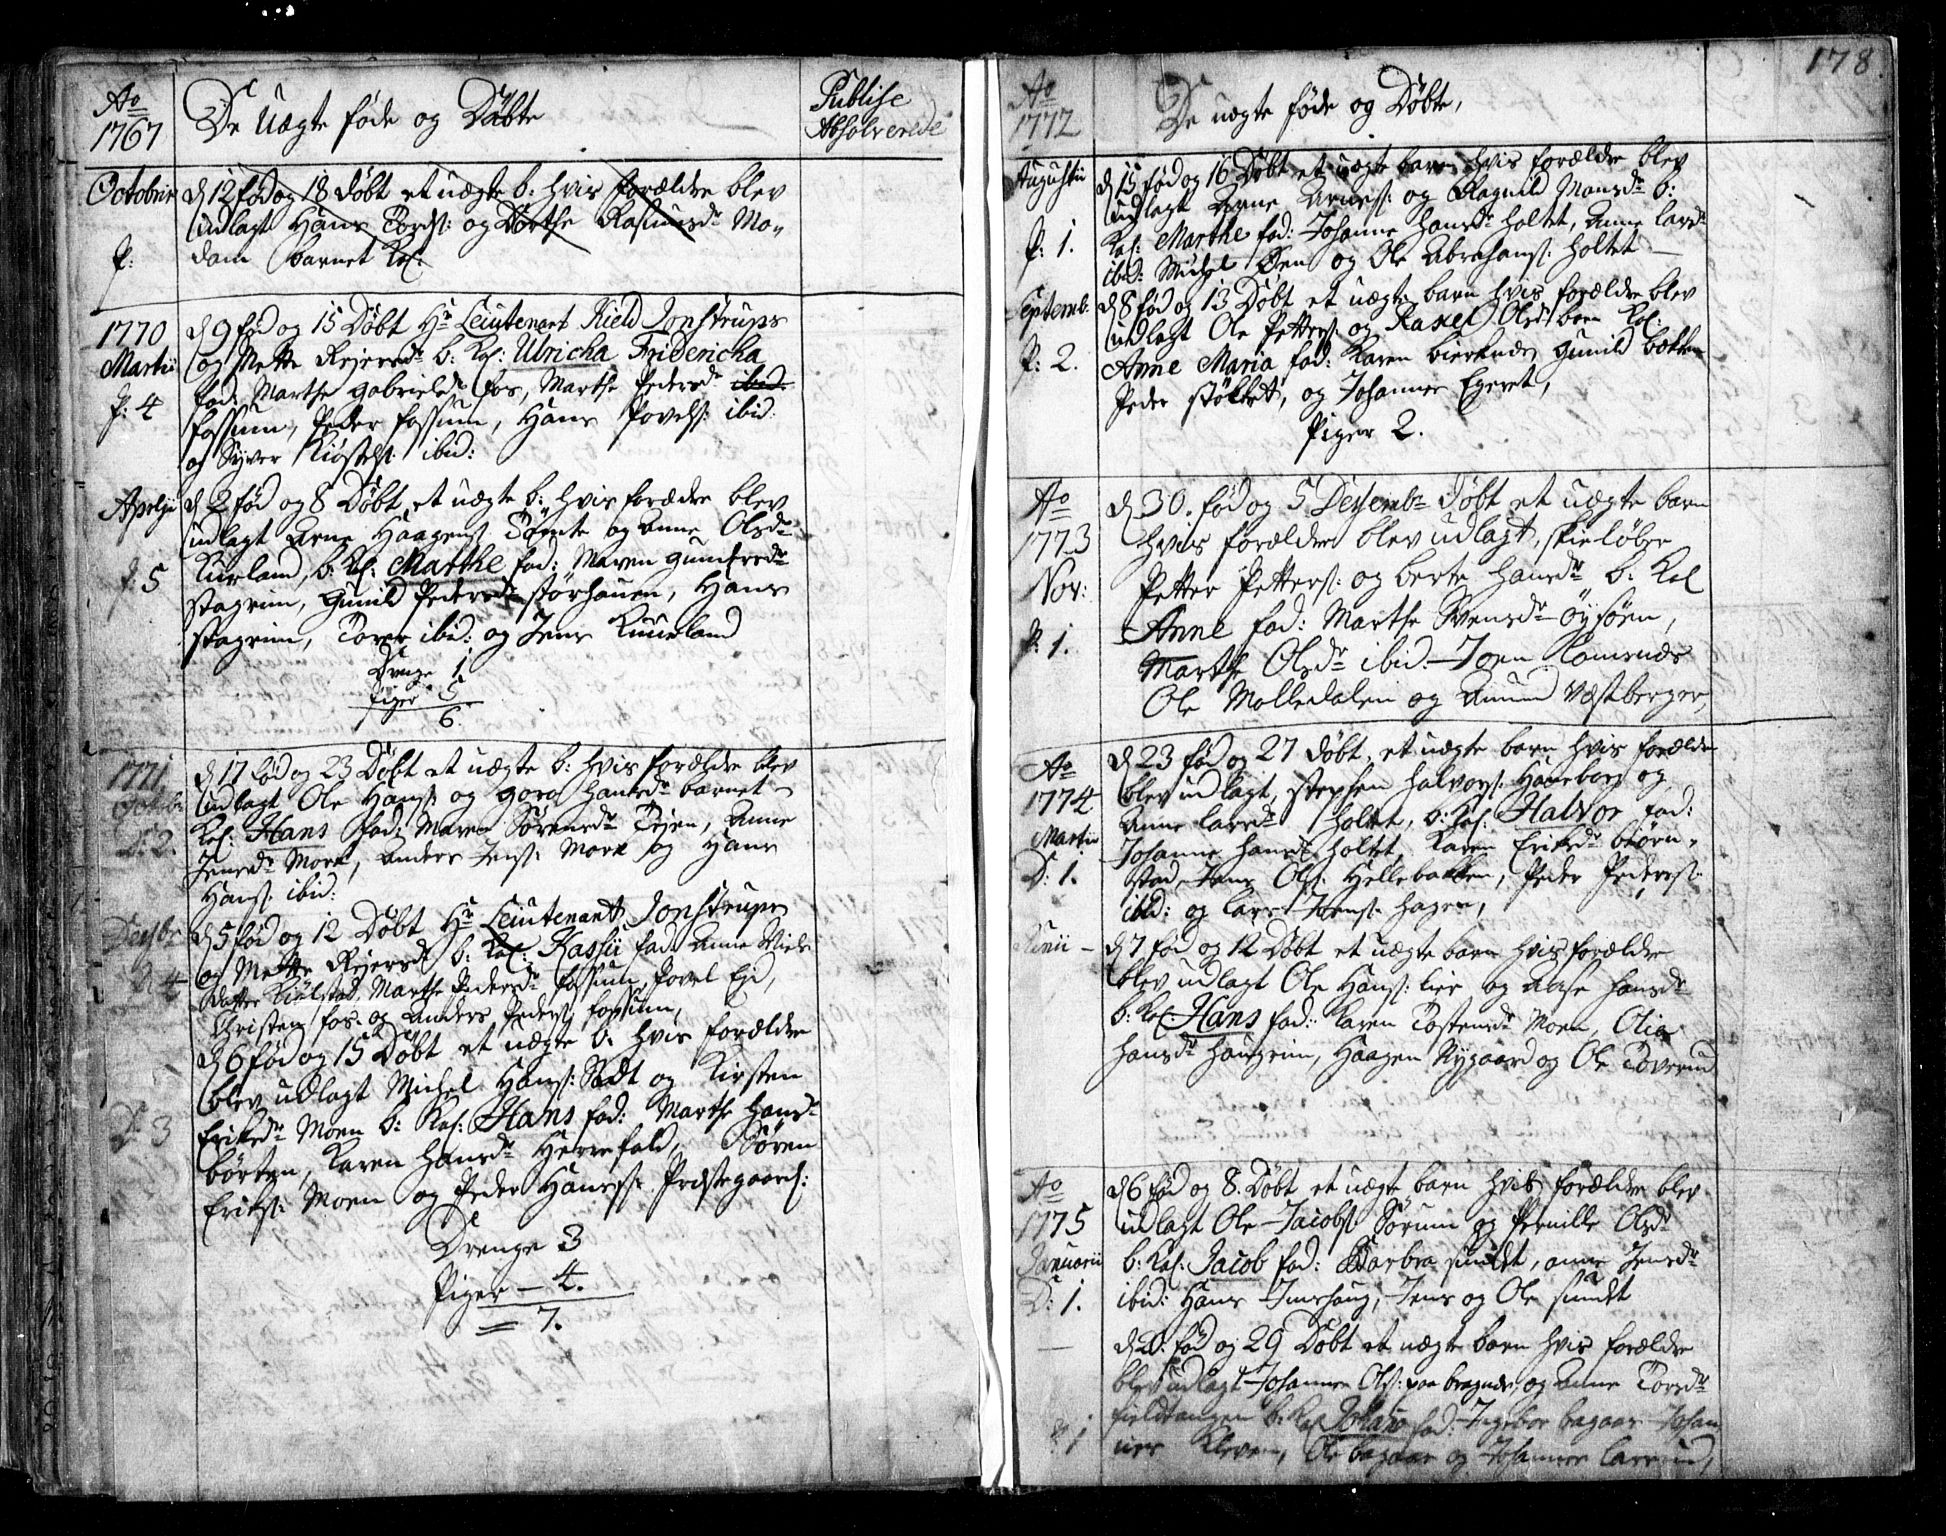 Ao
1767
De Uægte føde og Døbte
Publise
Absolverede
Octobris
d 12 fød og 18 døbt et uægte b: hvis forældre blev
udlagt Hans Tords: og Dorthe Rasmusdr Mo„
P:
dam barnet Kal:
1770
Martii
P: 4
d 9 fød og 15 Døbt Hr Leiutenant Kield Jonstrups
og Mette Rejersdr b: Kal: Ulricha Friderica
fad: Marthe Gabrielsdr fos, Marthe Pedersdr ibid
fossum, Peder fossum, Hans Povels: ibid:
og Syver Kiøstels: ibid:
Aprilii
P: 5
d 2 fød og 8 Døbt et uægte b: hvis forældre blev
udlagt Arne Haagens: Tømte og Anne Olsdr
Kurland, b: Kal: Marthe fad: Maren Gundersdr
stagrim, Gunild Pedersdr størhauen, Hans
stagrim, Torer ibid: og Jens Kuurland
Drenge 1
Piger 5
6.
1771
Octobr
D: 2.
d 17 fød og 23 Døbt et uægte b: hvis forældre blev
udlagt Ole Hans: og Goro Hansdr barnet
Kal: Hans fad: Maren Sørensdr Tejen, Anne
Jensdr Mork, Anders Jens: Mork og Hans
Hans: ibid:
Desbr
P 4
d 5 fød og 12 Døbt Hr Leiutenant Jonstrups
og Mette Rejersdr b: Kal: Kassii fad: Anne Niels
datter Kiølstad, Marthe Pedersdr fossum, Povel Eid,
Christen fos og Anders Peders: fossum,
D: 3
d 6 fød og 15 Døbt et uægte b: hvis forældre
blev udlagt Michel Hans: Sødt og Kirsten
Eriksdr Moen b: Kal: Hans fad: Marthe Hansdr
børten, Karen Hansdr Herrefald, Søren
Eriks: Moen og Peder Hans: Præstegaard:
Drenge 3
Piger — 4.
7.
178
Ao
1772
De uægte føde og Døbte,
Augustii
P: 1.
d 15 fød og 16 Døbt et uægte barn hvis forældre blev
udlagt Arne Arnes: og Ragnild Monsdr b:
Kal: Marthe fad: Johanne Hansdr Holtet, Anne larsdr
ibid: Michel Øen og Ole Abrahams: Holtet
Septemb.
P: 2.
d 8 fød og 13 Døbt et uægte barn hvis forældre blev
udlagt Ole Petters: og Raxel Olsdr barn Kal:
Anne Maria fad: Karen bierknes Gunild bakken
Peder støkket, og Johannes Egeret,
Piger 2.
Ao
1773
Nov:
P: 1.
d 30. fød og 5 Desembr døbt et uægte barn
hvis forældre blev udlagt, skieløber
Petter Petters: og berte Hansdr b: Kal
Anne fad: Marthe Svensdr øysøen,
Marthe Olsdr ibid. Joen Komsnæs
Ole Molledalen og Amund Væstberger,
Ao
1774
Martii
D: 1.
d 23 fød og 27 døbt, et uægte barn hvis forældre
blev udlagt, Stephen Halvors: Haneborg og
Anne larsdr Holtet, b: Kal: Halvor fad:
Johanne Hansdr Holtet Karen Eriksdr biørn„
stad Jens Ols: Hellebakken, Peder Peders:
ibid: og lars Jens: Hagen,
Junii —
d 7 fød og 12 Døbt et uægte barn hvis forældre
blev udlagt Ole Hans: lier og Aase Hansdr
b: Kal Hans fad: Karen Tostensdr Moen, Olia
Hansdr Haugrim, Haagen Nygaard og Ole Toverud
Ao
1775
Januarii
D: 1.
d 6 fød og 8. Døbt et uægte barn hvis forældre blev
udlagt Ole Jacobs: Sørum og Pernille Olsdr
b: Kal: Jacob fad: Barbra sundt, Anne Jensdr
ibid: Hans Imshaug, Jens og Ole sundt
d 20 fød og 29 Døbt et uægte barn hvis forældre
blev udlagt Johannes Ols: paa bragnæs, og Anne Torsdr
fieldtangen b: Kal fad: Ingebor bagaas Johan
P 1
nes Kleven, Ole bagaas og Johannes larsrud,